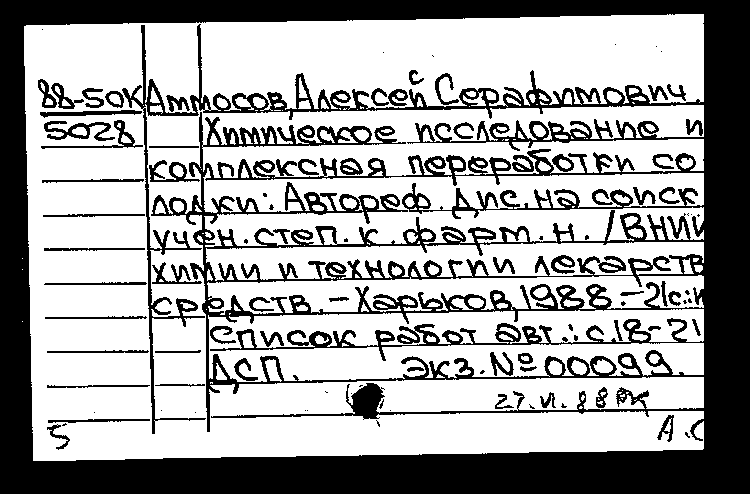 88-50К Аммосов, Алексей Серафимович.
5028 Химическое исследование и
комплексная переработки со-
лодки: Автореф. дис. на соиск.
учен. степ. к. фарм. н. /ВНИИ
химии и технологии лекарств
средств. - Харьков, 1988. - 21с.: и
Список работ авт.: с.18-21
ДСП. Экз. № 00099.
27.VI.88
5 А.С